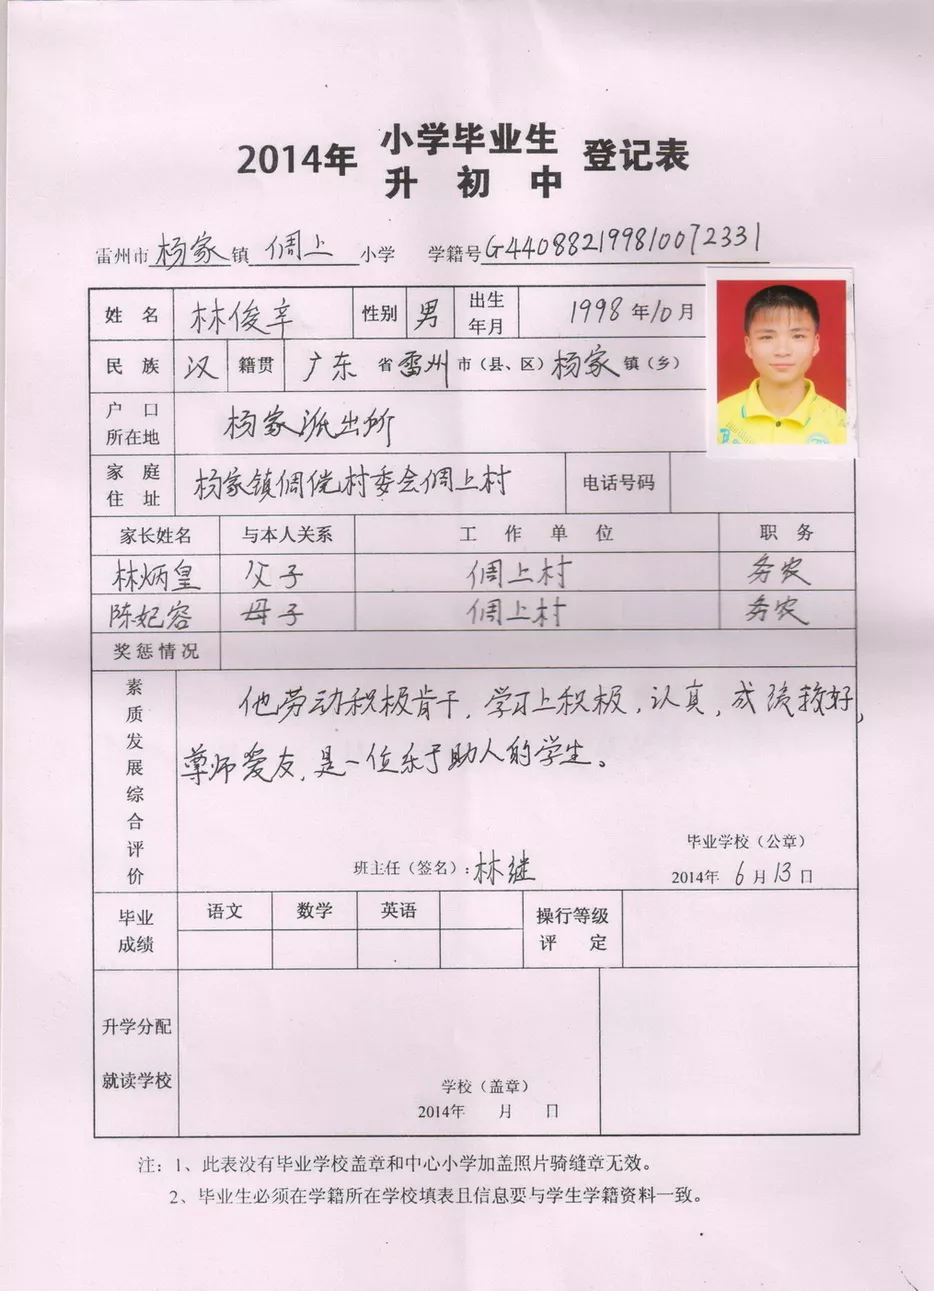 2014年 小学毕业生 登记表
升 初 中
雷州市杨家镇倜上小学 学籍号G440882199810072331
姓 名 林俊辛 性别 男 出生年月 1998年10月
民 族 汉 籍贯 广东省雷州市(县、区)杨家镇(乡)
户 口所在地 杨家派出所
家 庭住 址 杨家镇倜傥村委会倜上村 电话号码
家长姓名 与本人关系 工 作 单 位 职 务
林炳皇 父子 倜上村 务农
陈妃容 母子 倜上村 务农
奖惩情况
素质发展综合评价
他劳动积极肯干,学习上积极,认真,成绩较好,
尊师爱友,是一位乐于助人的学生。
毕业学校(公章)
班主任(签名):林继 2014年6月13日
毕业成绩 语文 数学 英语 操行等级评 定
升学分配
就读学校
学校(盖章)
2014年 月 日
注:1、此表没有毕业学校盖章和中心小学加盖照片骑缝章无效。
2、毕业生必须在学籍所在学校填表且信息要与学生学籍资料一致。